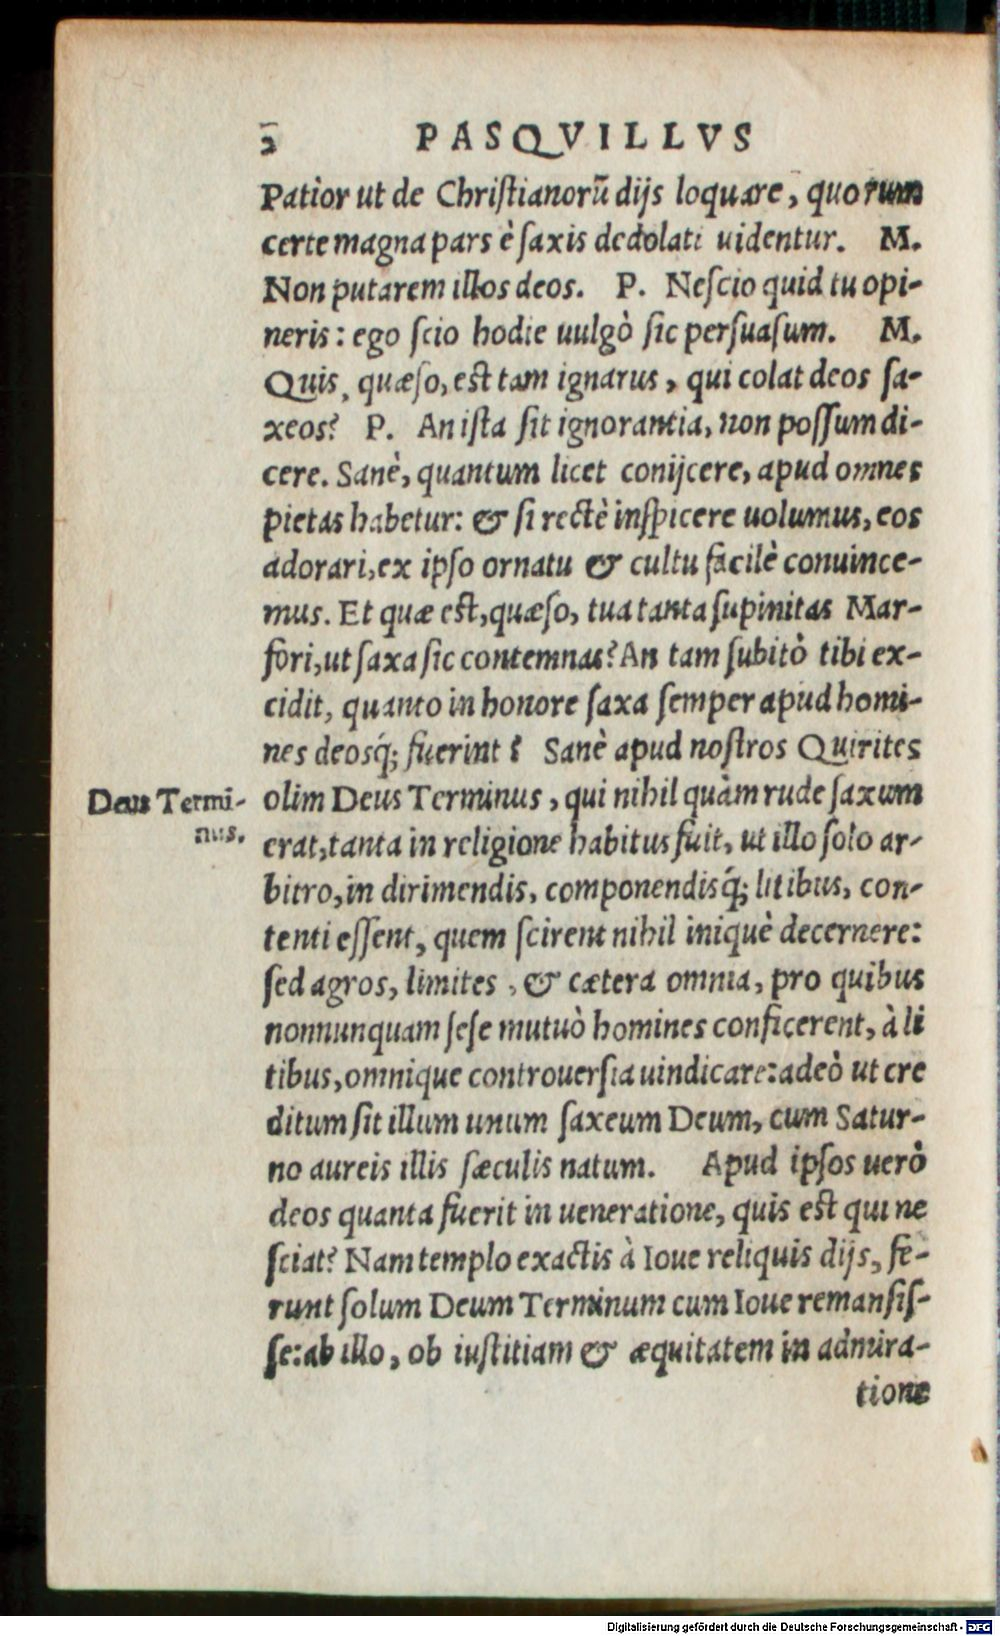 2 PASQVILLVS
Patior ut de Christianorũ dijs loquare, quorum
certe magna pars è saxis dedolati uidentur. M.
Non putarem illos deos. P. Nescio quid tu opi-
neris: ego scio hodie uulgò sic persuasum. M.
Quis, quæso, est tam ignarus, qui colat deos sa-
xeos? P. An ista sit ignorantia, non possum di-
cere. Sanè, quantum licet conijcere, apud omnes
pietas habetur: & si rectè inspicere uolumus, eos
adorari, ex ipso ornatu & cultu facilè conuince-
mus. Et quæ est, quæso, tua tanta supinitas Mar-
fori, ut saxa sic contemnas? An tam subitò tibi ex-
cidit, quanto in honore saxa semper apud homi-
nes deosq́; fuerint? Sanè apud nostros Quirites
Deus Termi-
nus.
olim Deus Terminus, qui nihil quàm rude saxum
erat, tanta in religione habitus fuit, ut illo solo ar-
bitro, in dirimendis, componendisq́; litibus, con-
tenti essent, quem scirent nihil iniquè decernere:
sed agros, limites, & cætera omnia, pro quibus
nonnunquam sese mutuò homines conficerent, à li
tibus, omnique controuersia uindicare: adeò ut cre
ditum sit illum unum saxeum Deum, cum Satur-
no aureis illis sæculis natum. Apud ipsos uerò
deos quanta fuerit in ueneratione, quis est qui ne
sciat? Nam templo exactis à Ioue reliquis dijs, fe-
runt solum Deum Terminum cum Ioue remansis-
se: ab illo, ob iustitiam & æquitatem in admira-
tione
Digitalisierung gefördert durch die Deutsche Forschungsgemeinschaft - DFG